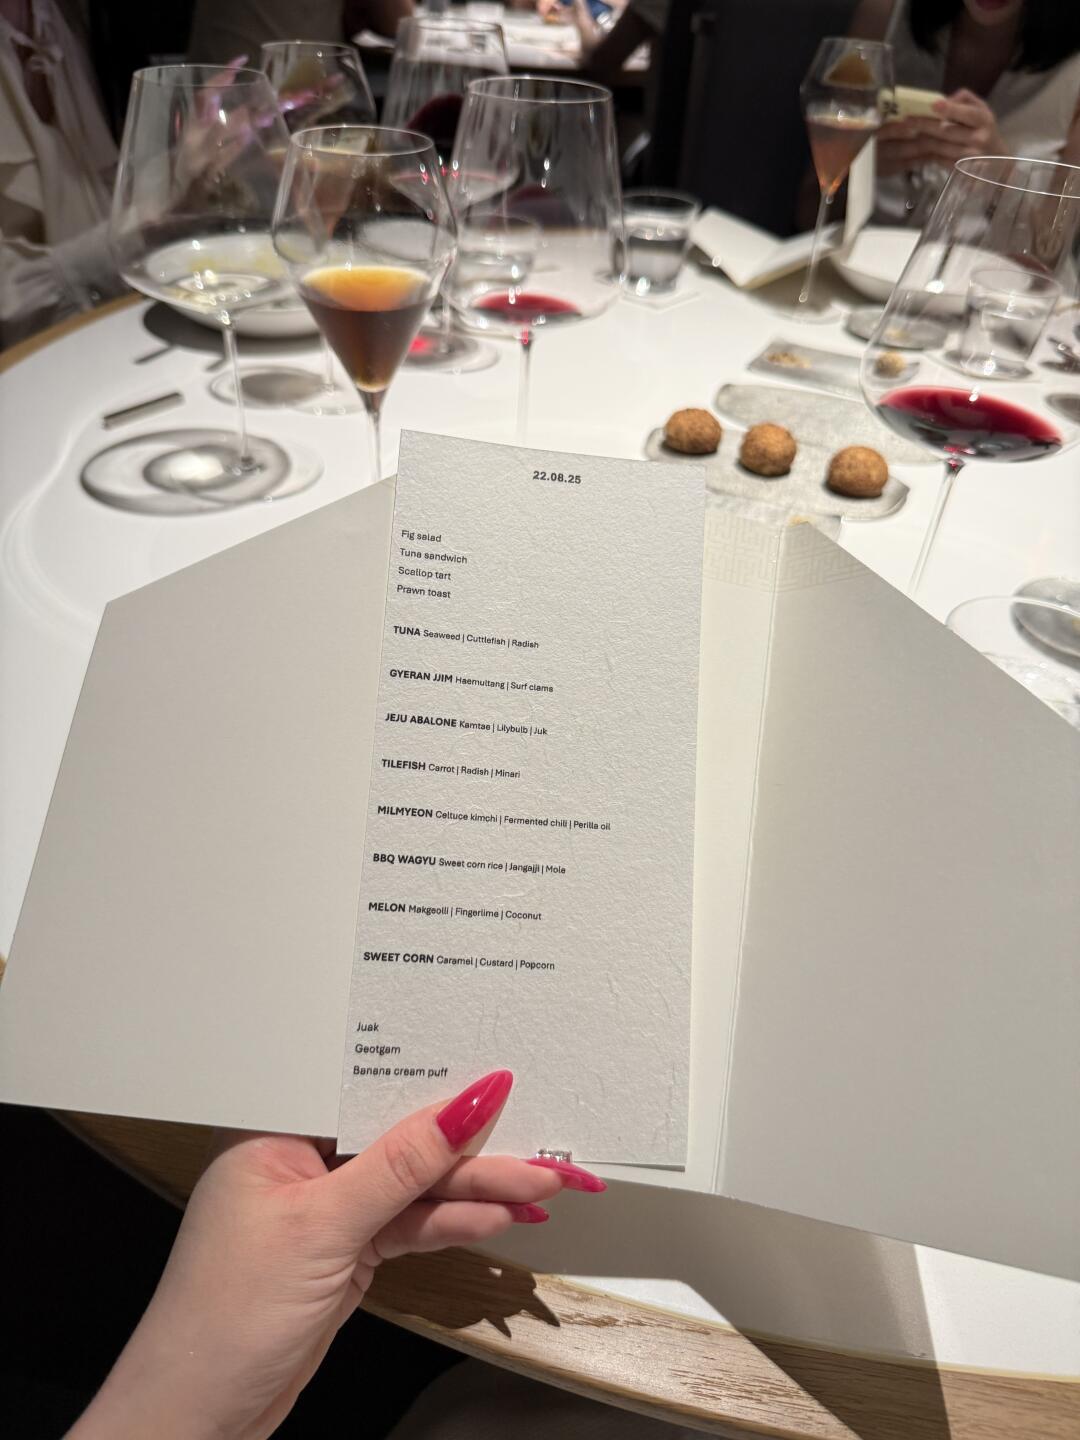 22.08.25
Fig salad
Tuna sandwich
Scallop tart
Prawn toast
TUNA Seaweed | Cuttlefish | Radish
GYERAN JJIM Haemultang | Surf clams
JEJU ABALONE Kamtae | Lilybulb | Juk
TILEFISH Carrot | Radish | Minari
MILMYEON Celtuce kimchi | Fermented chili | Perilla oil
BBQ WAGYU Sweet corn rice | Jangajji | Mole
MELON Makgeolli | Fingerlime | Coconut
SWEET CORN Caramel | Custard | Popcorn
Juak
Geotgam
Banana cream puff